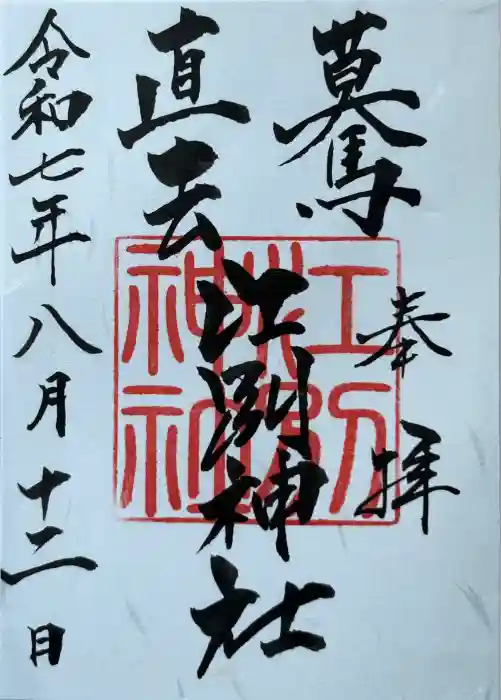 奉拝
驀
直去
江別神社
江別
神社
令和七年八月十二日